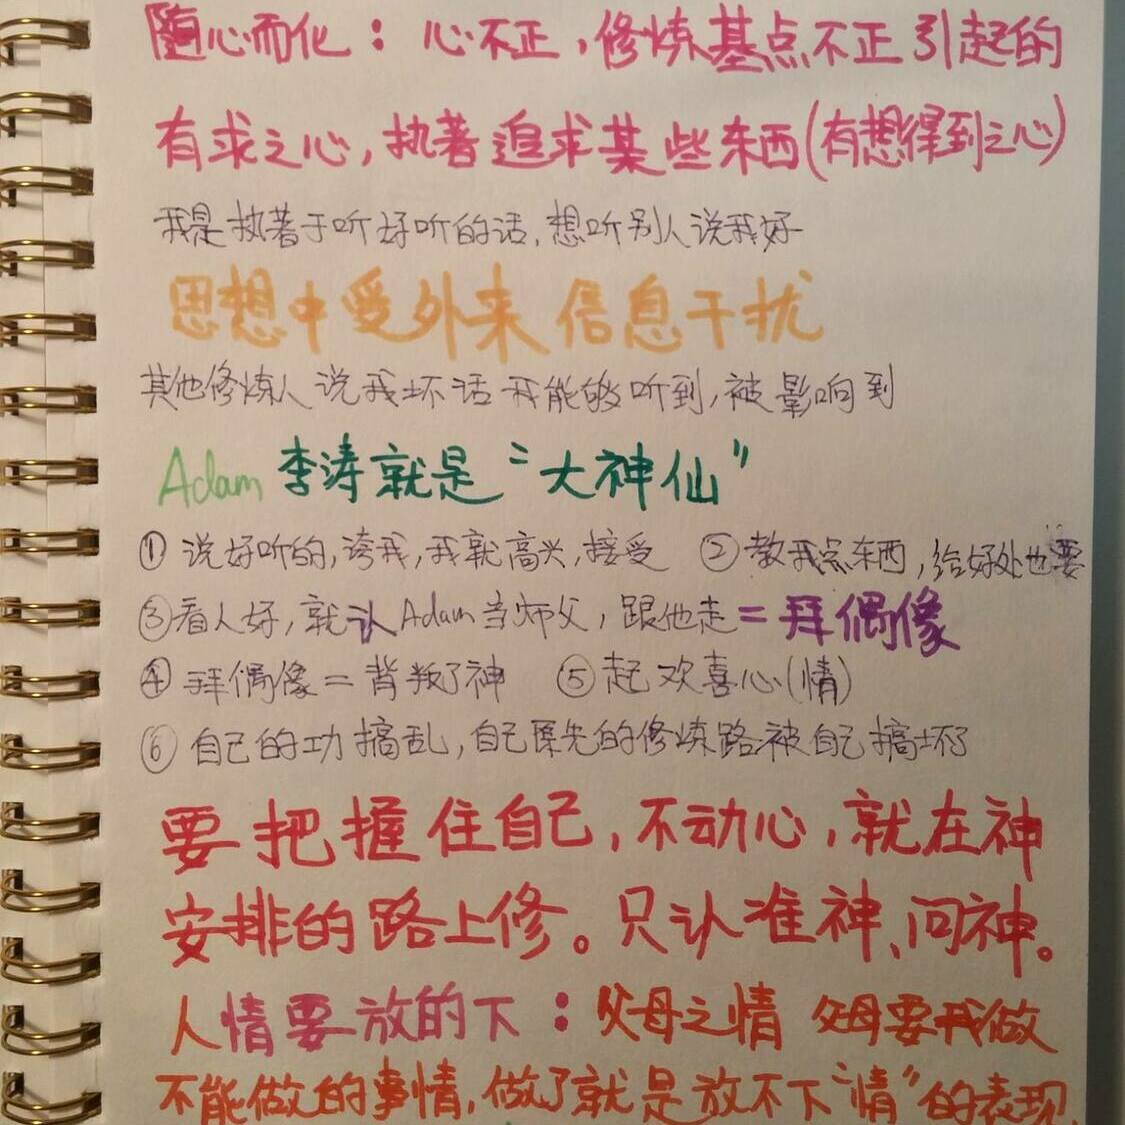 随心而化：心不正，修炼基点不正引起的
有求之心，执著追求某些东西(有想得到之心)
我是执著于听好听的话，想听别人说我好
思想中受外来信息干扰
其他修炼人说我坏话我能够听到，被影响到
Adam 李涛就是“大神仙”
① 说好听的，夸我，我就高兴，接受 ② 教我点东西，给好处也要
③看人好，就认Adam当师父，跟他走=拜偶像
④ 拜偶像=背叛了神 ⑤起欢喜心(情)
⑥ 自己的功搞乱，自己原先的修炼路被自己搞坏了
要把握住自己，不动心，就在神
安排的路上修。只认准神、问神。
人情要放的下：父母之情 父母要我做
不能做的事情，做了就是放不下“情”的表现，